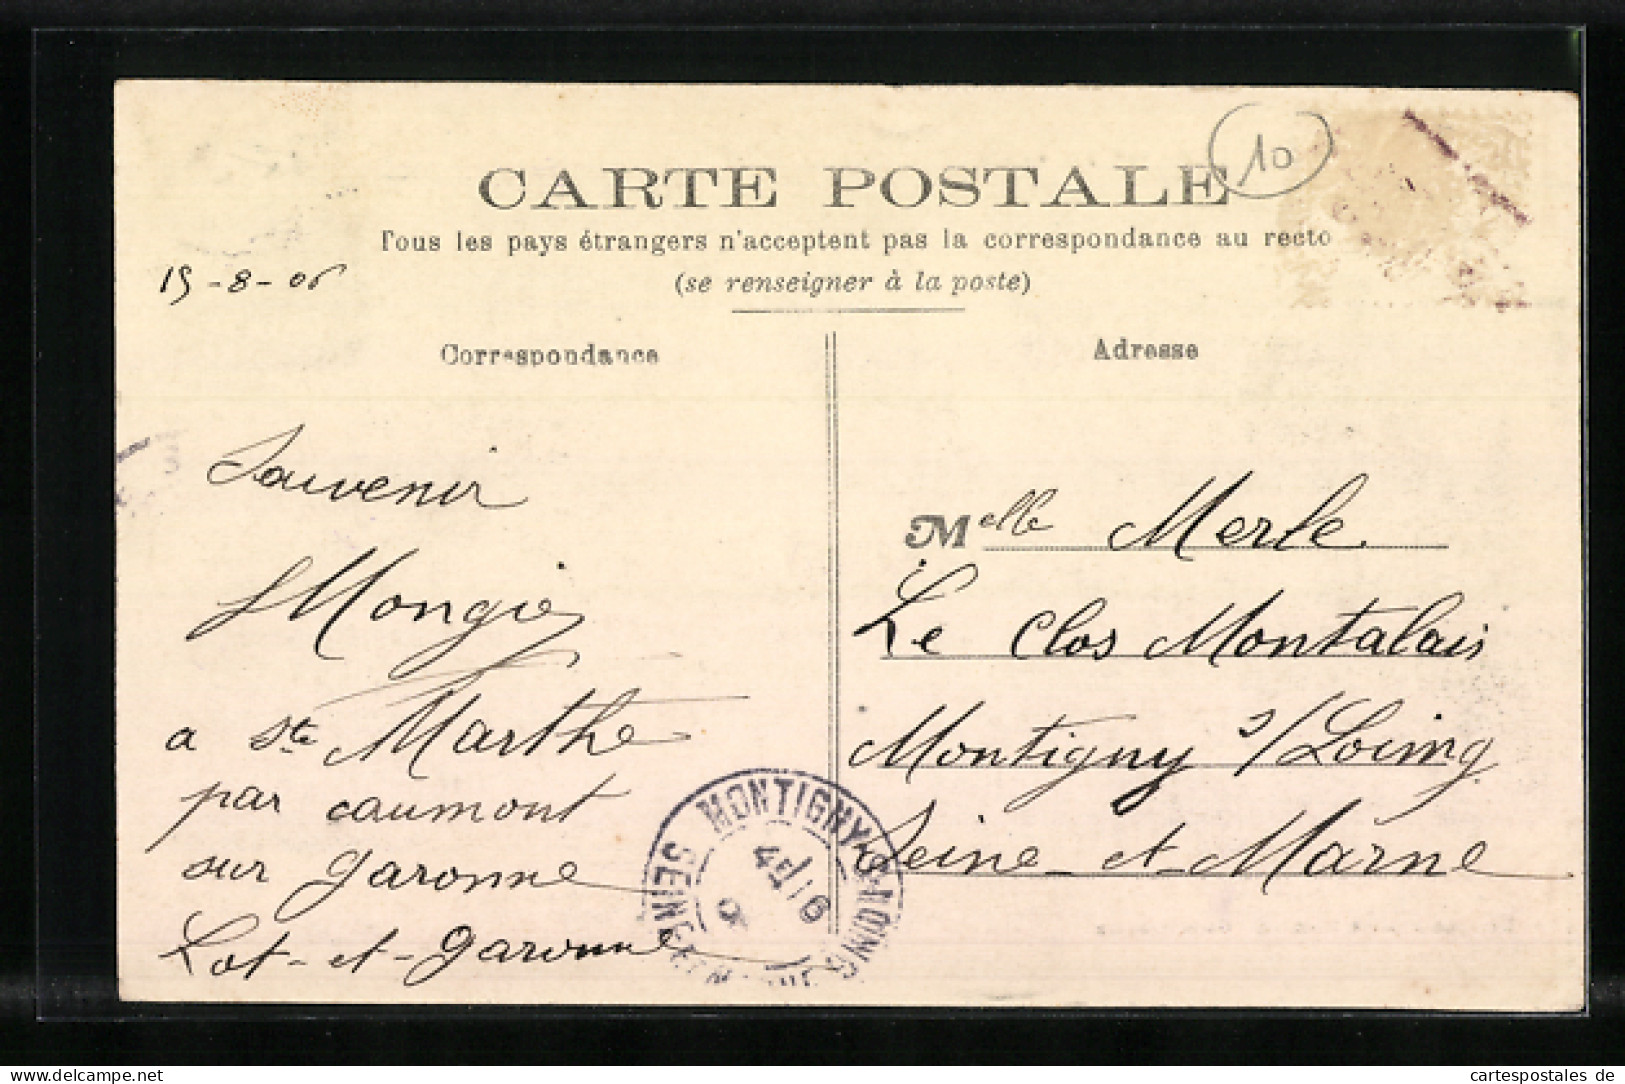 10
CARTE POSTALE
Tous les pays étrangers n'acceptent pas la correspondance au recto
(se renseigner à la poste)
15-8-06
Correspondance
Adresse
Souvenir
Mongie
a Ste Marthe
par caumont
sur garonne
Lot-et-garonne
Melle Merle
Le Clos Montalais
Montigny s/Loing
Seine-et-Marne
MONTIGNY-S-LOING
SEINE-ET-MARNE
cartespostales de
www.cartespostales.de